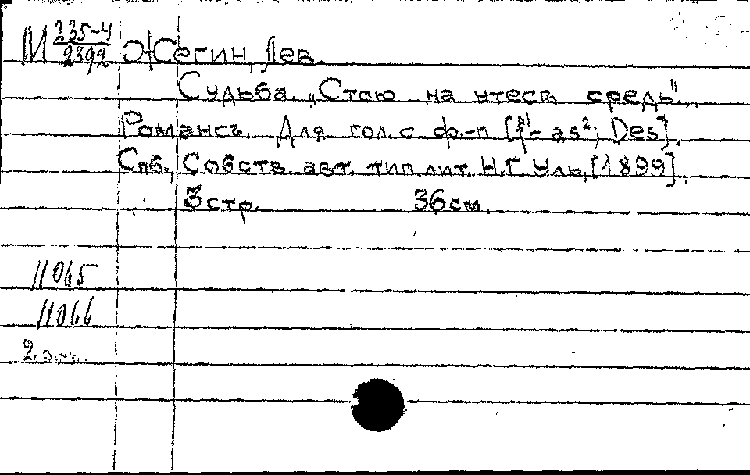 М 235-4/2392 Жегин, Лев.
Судьба. „Стою на утесѣ средь"...
Романсъ. Для гол. с ф-п [f¹- as²; Des].
Спб., Собств. авт. тип. лит. Н.Г. Уль, [1899].
3 стр. 36 см.
11065
11066
2 экз.